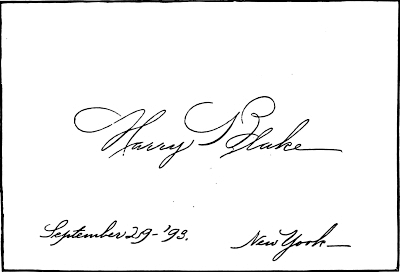 Harry Blake
September 29-'93. New York